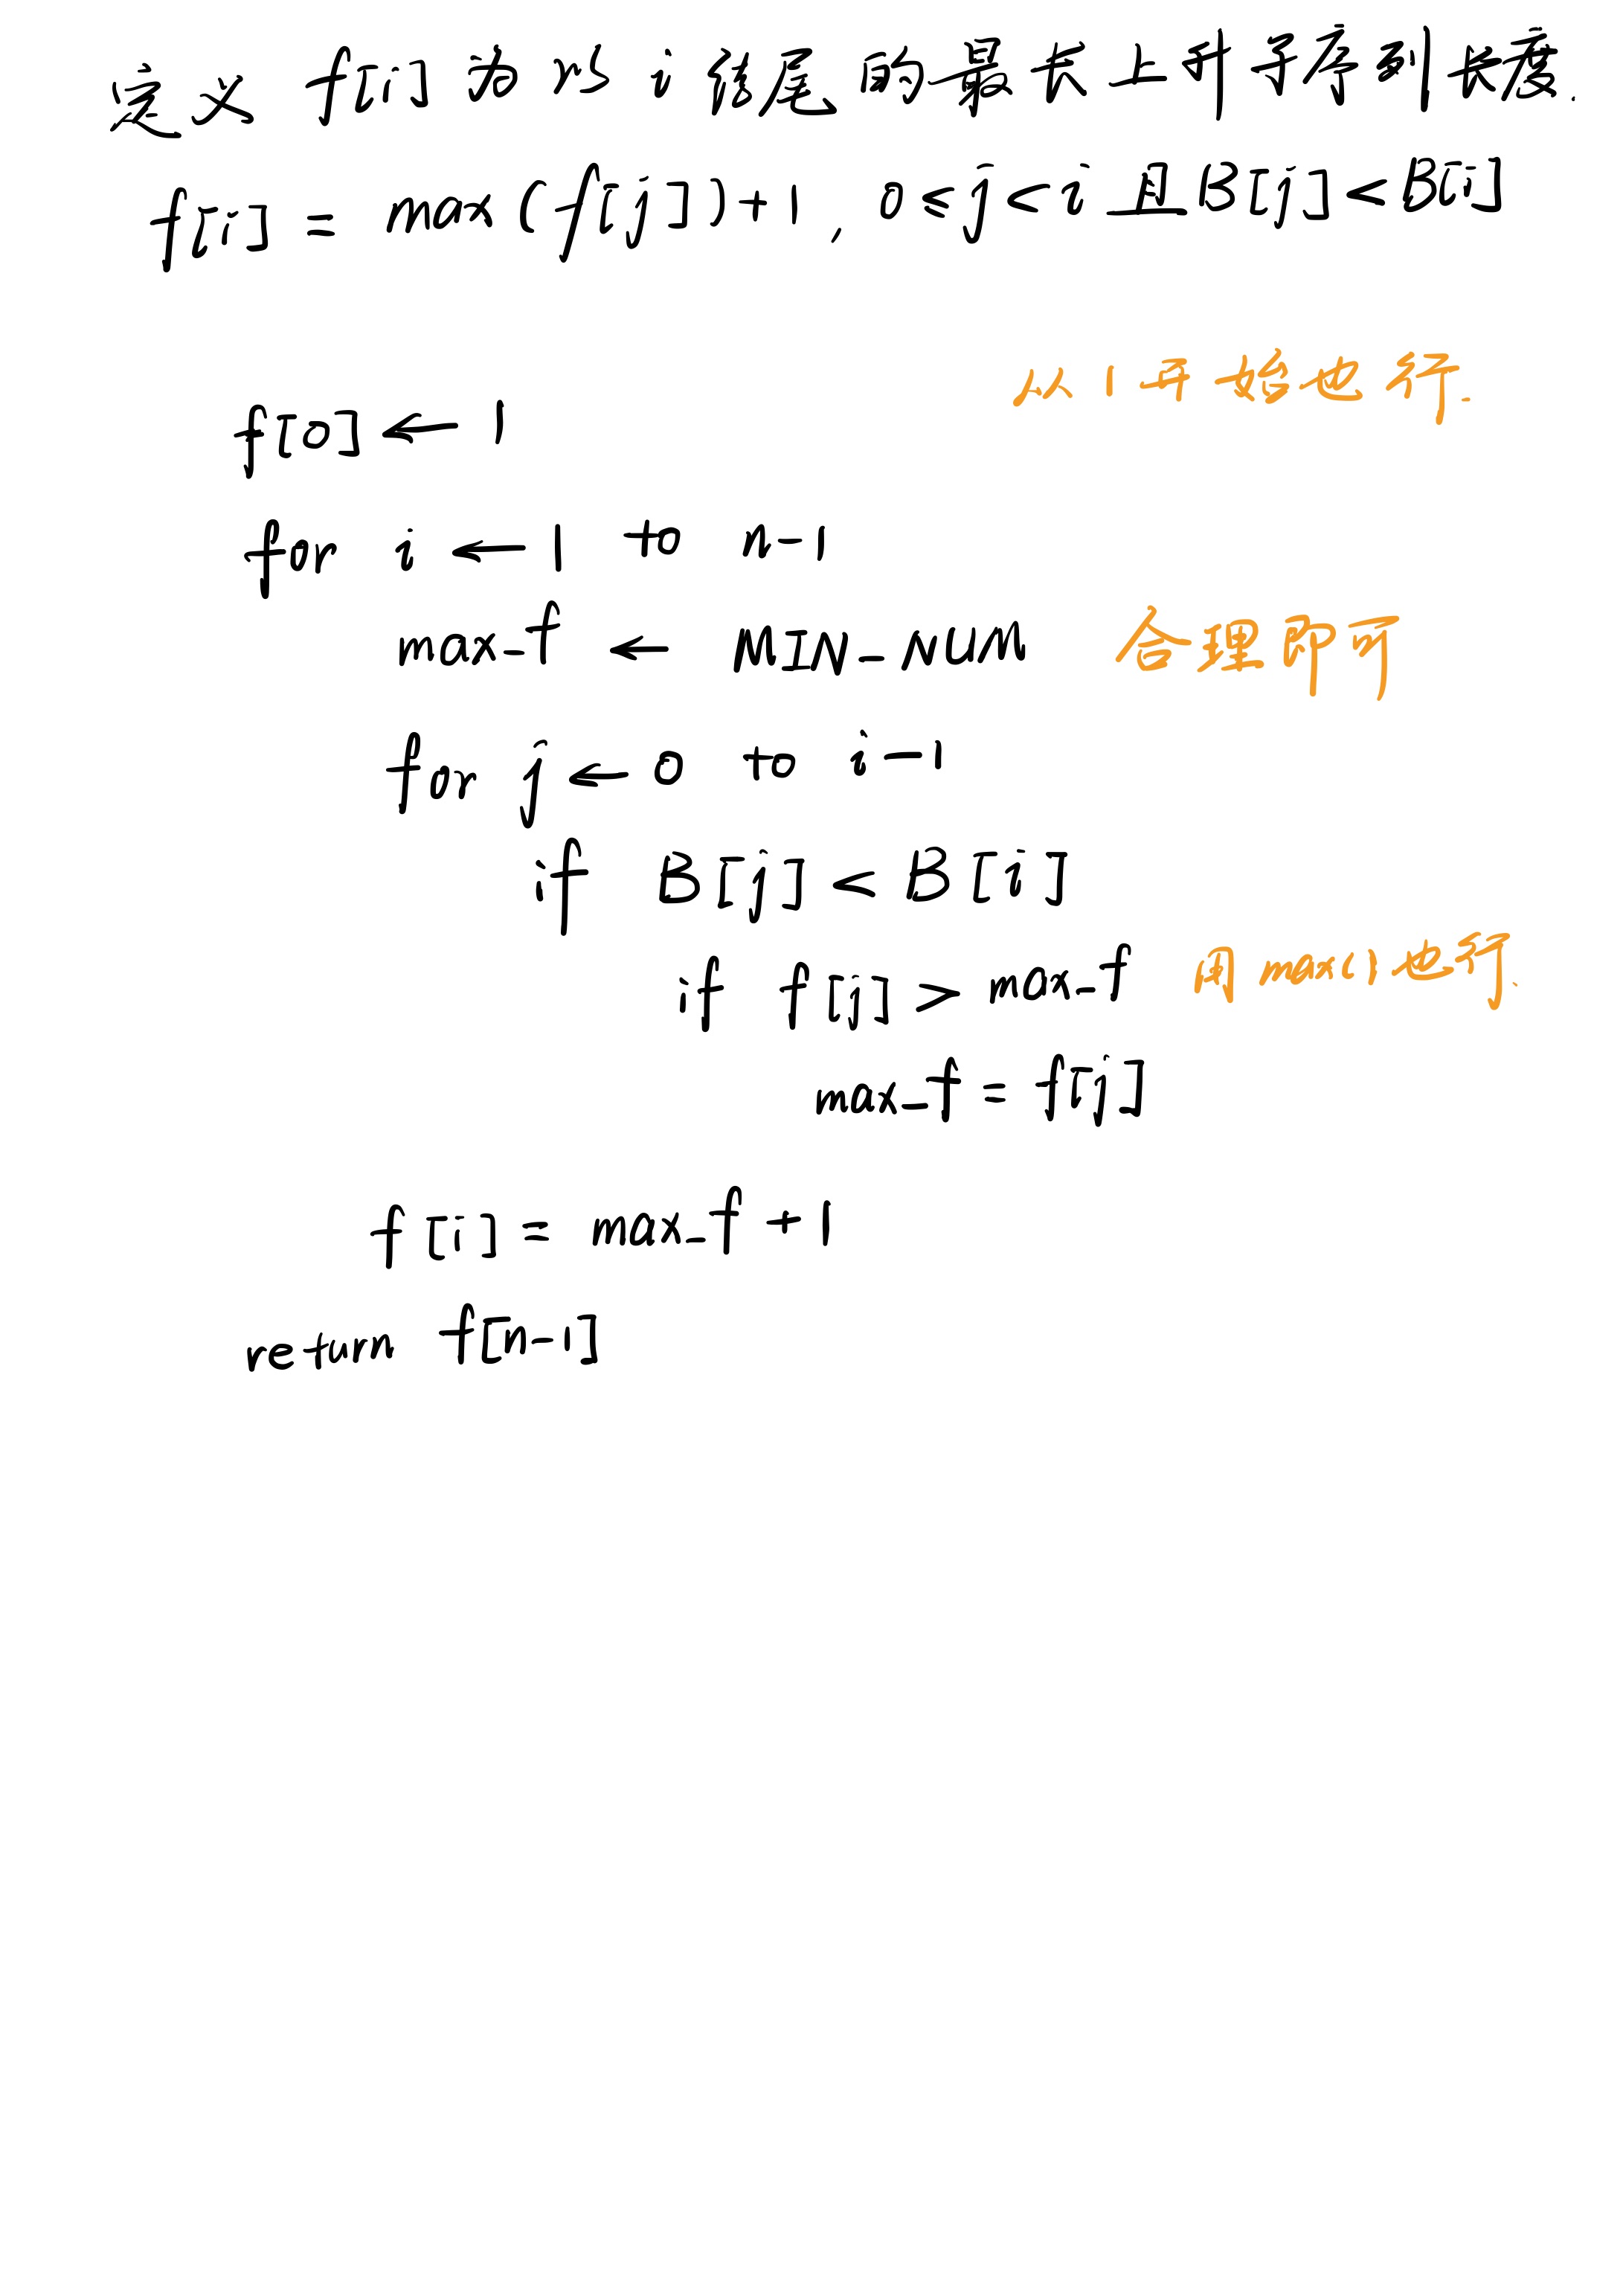 定义 f[i] 为以 i 结尾的最长上升子序列长度.
f[i] = max(f[j])+1, 0≤j<i 且B[j]<B[i]
从1开始也行.
f[0]←1
for i←1 to n-1
max_f ← MIN_NUM 合理即可
for j←0 to i-1
if B[j]<B[i]
if f[j]>max_f 用max()也行.
max_f = f[j]
f[i] = max_f+1
return f[n-1]